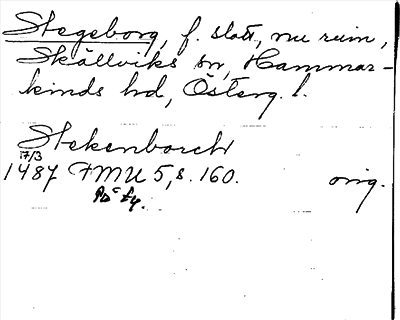 Stegeborg, f. slott, nu ruin,
Skällviks sn, Hammar-
kinds hd, Österg. l.
Stekenborch
17/3
1487 FMU 5, s. 160. orig.